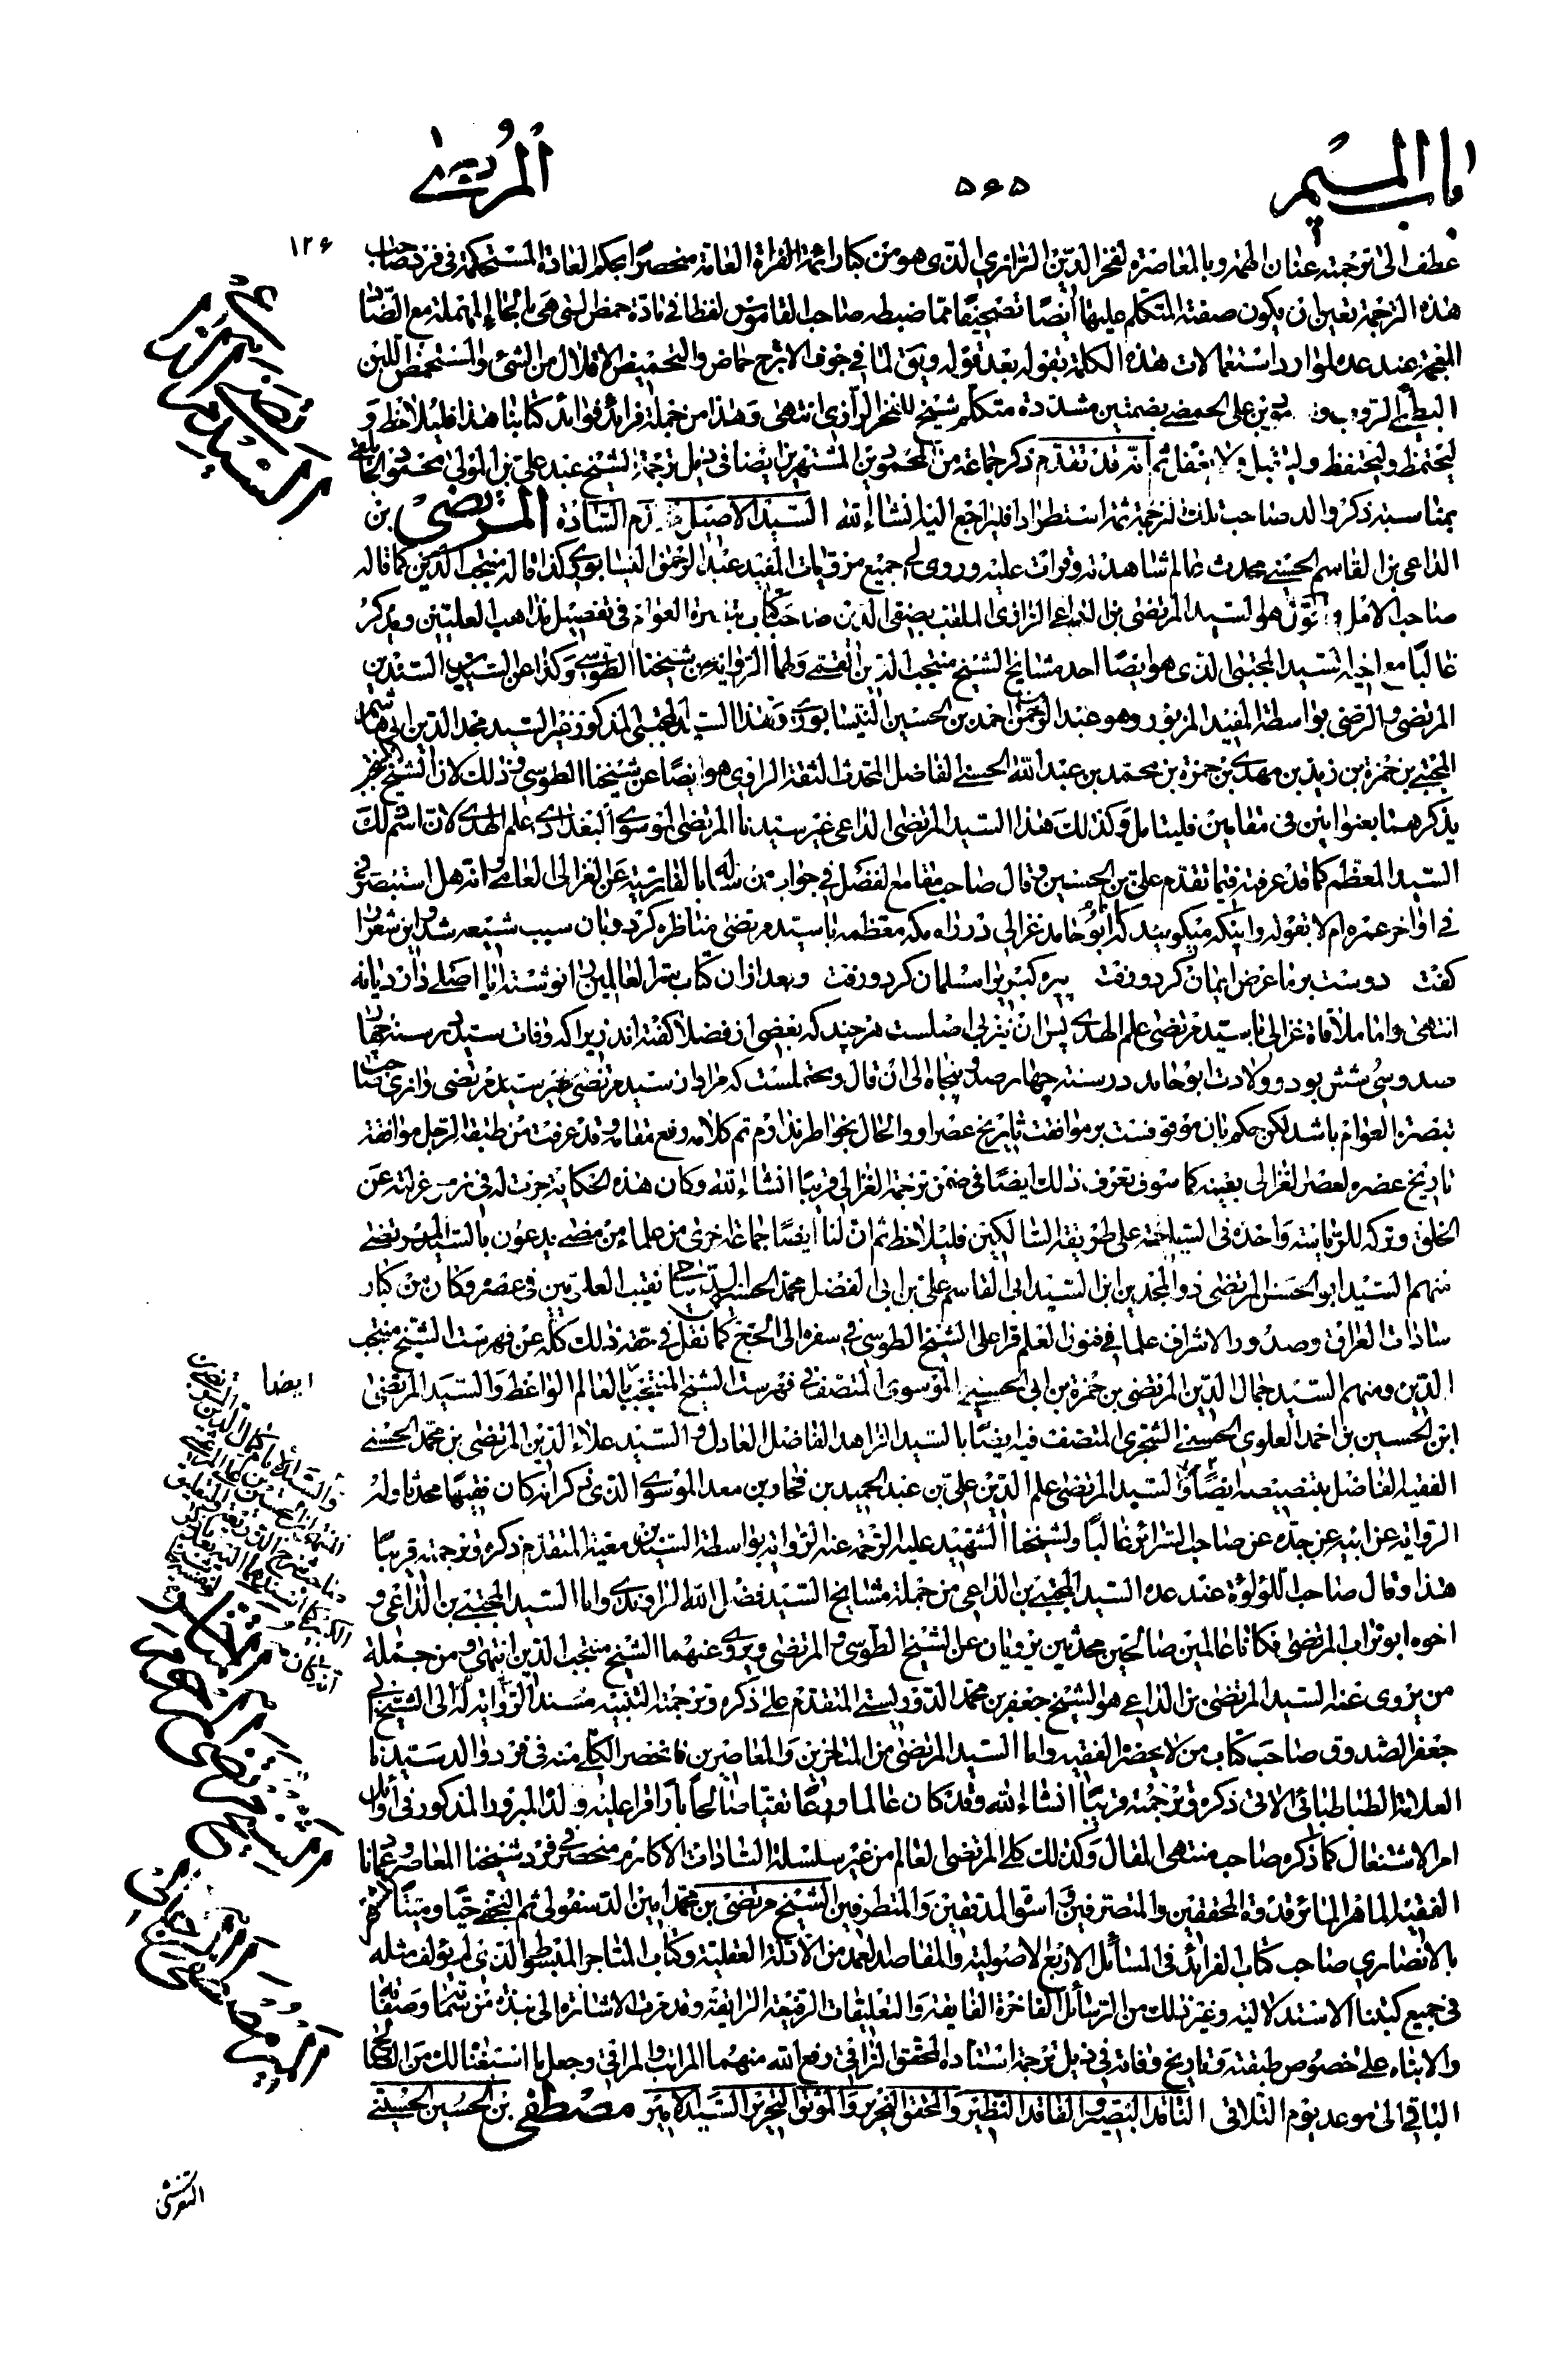 باب الميم
۵۶۵
المرتضى
۱۲۶
عطف الى ترجمته عنان الهمة وبالمعاصرة لفخر الدين الرازي الذى هو من كبار ائمة الفراة العامة منحصرا بحكم العادة المستحكمة فى فرد صاحب
هذه الترجمة تعين ان يكون صفته المتكلم عليها أيضا تصحيفا مما ضبطه صاحب القاموس لفظا فى مادة حمض التى هى بالحاء المهملة مع الضاد
المعجمة عند عده لموارد استعمالات هذه الكلمة بقوله بعد قوله ويق لما في جوف الاترج حماض والتحميض الاقلال من الشئ والمستحمض اللبن
البطئ الروب بن على الحمضى بضمتين مشددة متكلم شيخ للفخر الرازى انتهى وهذا من جملة فرائد فوائد كتابنا هذا فليلاحظ و
ليحتفظ ولا يغفل ثم انه قد تقدم ذكر جماعة من المحمودين المشتهرين ايضا فى ذيل ترجمة الشيخ عبد على بن المولى محمود الجابلقى
بمناسبة ذكر والد صاحب تلك الترجمة ثمة استطرادا فليراجع اليها انشاء الله السيد الاصيل السادة المرتضى بن
الداعى بن القاسم الحسنى محدث عالم شاهدته وقرات عليه وروى لى جميع مرويات المفيد عبد الرحمن النيسابوري كذا قاله منتجب الدين كما قاله
صاحب الامل و هو السيد المرتضى بن الداعى الرازى الملقب بصفى الدين صاحب كتاب تبصرة العوام فى تفصيل مذاهب ويذكر
غالبا مع اخيه السيد المجتبى الذى هو ايضا احد مشايخ الشيخ منتجب الدين القمى ولهما الرواية عن شيخنا الطوسى وكذا عن السيدين السندين
المرتضى والرضى بواسطة المفيد المزبور وهو عبد الرحمن بن احمد بن الحسين النيسابوري وهذا السيد المجتبى المذكور غير السيد مجد الدين ابى هاشم
المجتبى بن حمزة بن زيد بن مهدى بن حمزة بن محمد بن عبد الله الحسنى الفاضل المحدث الثقة الراوى هو ايضا عن شيخنا الطوسى وذلك لان الشيخ
يذكرهما بعنوانين فى مقامين فليتامل وكذلك هذا السيد المرتضى الداعى غير سيدنا المرتضى الموسوي البغدادي علم الهدى لان اسم ذلك
السيد المعظم كما قد عرفته فيما تقدم على بن الحسين وقال صاحب مقامع الفضل فى جواب من ساله بالفارسية عن الغزالى العامى انه هل استبصر
فى اواخر عمره ام لا بقوله واينكه ميگويند كه ابو حامد غزالى در راه مكه معظمه با سيد مرتضى مناظره كرد وبان سبب شيعه شد واين شعر را
گفت دوست بر ما عرض ايمان كرد ورفت پير گبرى را مسلمان كرد ورفت وبعد از ان كتاب سر العالمين را نوشته ايا اصلى دارد يا نه
انتهى واما ملاقاة غزالى با سيد مرتضى علم الهدى پس ان نيز بى اصلست هر چند كه بعضى از فضلا گفته اند زيرا كه وفات سيد در سنه چهار
صد وسى وشش بود وولادت ابو حامد در سنه چهار صد وپنجاه الى ان قال ومحتملست كه مراد از سيد مرتضى غير سيد مرتضى رازى صاحب
تبصرة العوام باشد لكن حكم بان موقوفست بر موافقت تاريخ عصر او والحال بخواطر ندارم تم كلامه رفع مقامه وقد عرفت من طبقة الرجل موافقة
تاريخ عصره لعصر الغزالى بعينه كما سوف تعرف ذلك ايضا فى ضمن ترجمة الغزالى قريبا انشاء الله وكان هذه الحكاية جرت له فى زمن عزلته عن
الخلق وتركه للرياسة واخذه فى السياحة على طريقة السالكين فليلاحظ ثم ان لنا ايضا جماعة اخرى من علماء من مضى يدعون بالسيد المرتضى
منهم السيد ابو الحسن المرتضى ذو المجدين ابن السيد ابى القاسم على بن ابى الفضل محمد الحسينى نقيب العلويين فى عصره وكان من كبار
سادات العراق وصدور الاشراف علما فى فنون العلم قرا على الشيخ الطوسى فى سفره الى الحج كما نقل فى حقه ذلك كله عن فهرست الشيخ منتجب
الدين ومنهم السيد جمال الدين المرتضى بن حمزة بن ابى الحسينى الموسوى المتصف فى فهرست الشيخ المنتجب بالعالم الواعظ والسيد المرتضى
ابن الحسين بن احمد العلوى الحسينى الشجرى المتصف فيه ايضا بالسيد الزاهد الفاضل العادل والسيد علاء الدين المرتضى بن محمد الحسنى
الفقيه الفاضل بتنصيصه ايضا والسيد المرتضى علم الدين على بن عبد الحميد بن فخار بن معد الموسوى الذى ذكر انه كان فقيها محدثا وله
الرواية عن ابيه عن جده عن صاحب السرائر غالبا ولشيخنا الشهيد عليه الرحمة عنه الرواية بواسطة السيد بن معية المتقدم ذكره وترجمته قريبا
هذا وقال صاحب اللؤلؤة عند عده السيد المجتبى بن الداعى من جملة مشايخ السيد فضل الله الراوندى واما السيد المجتبى بن الداعى و
اخوه ابو تراب المرتضى فكانا عالمين صالحين محدثين يرويان عن الشيخ الطوسى والمرتضى ويروى عنهما الشيخ منتجب الدين انتهى ومن جملة
من يروى عنه السيد المرتضى بن الداعى هو الشيخ جعفر بن محمد الدوريستى المتقدم على ذكره وترجمته التنبيه مسندا الرواية له الى الشيخ ابى
جعفر الصدوق صاحب كتاب من لا يحضره الفقيه واما السيد المرتضى من المتاخرين والمعاصرين فانحصر الكلى منه فى فرد والد سيدنا
العلامة الطباطبائى الاتى ذكره وترجمته قريبا انشاء الله وقد كان عالما ورعا تقيا صالحا بارا قرا عليه ولده المبرور المذكور فى اوائل
امر الاشتغال كما ذكره صاحب منتهى المقال وكذلك كلى المرتضى العالم من غير سلسلة السادات الاكارم منحصر فى فرد شيخنا المعاصر
الفقيه الماهر قدوة المحققين والمتصرفين واسوة المدققين والمتطرفين الشيخ مرتضى بن محمد امين الدسفولى ثم النجفى حيا وميتا
بالانصارى صاحب كتاب الفرائد فى المسائل الاربع الاصولية والمقاصد العمد من الادلة العقلية وكتاب المتاجر المبسوط الذى لم يؤلف مثله
فى جميع كتبنا الاستدلالية وغير ذلك من الرسائل الفاخرة الفايقة والتعليقات الرفيعة الرايقة وقد مرت الاشارة الى نبذة من وصفاته
والانباء على خصوص طبقته وتاريخ وفاته فى ذيل ترجمة استاده المحقق النراقى رفع الله منهما المراتب والمراقى وجعل ما استغنا لك من
الباقى الى موعد يوم التلاقى الناقد البصير والفاقد النظير والمحقق النحرير والموثق التحرير السيد الامير مصطفى بن الحسين الحسينى
ايضا
التفرشى